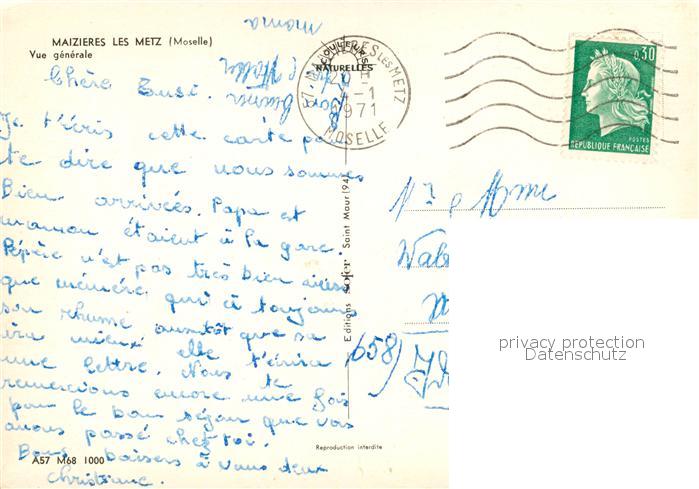 MAIZIERES LES METZ (Moselle)
Vue générale
Chère Zusi.
Je t'écris cette carte pour
te dire que nous sommes
Bien arrivées. Papa et
maman étaient à la gare.
Pépère n'est pas très bien ainsi
que mémère, qui a toujours
son rhume aussitôt que sa
ira mieux elle t'écrira
une lettre. Nous te
remercions encore une fois
pour le bon séjour que vous
avons passé chez toi.
Bons baisers à vous deux
Christiane.
A57 M68 1000
maman
COULEURS
NATURELLES
57 MAIZIERES LES METZ
4-1
1971
MOSELLE
Editions Sofer Saint Maur (94)
Reproduction interdite
0,30
POSTES
REPUBLIQUE FRANÇAISE
Mr e Mme
658
privacy protection
Datenschutz